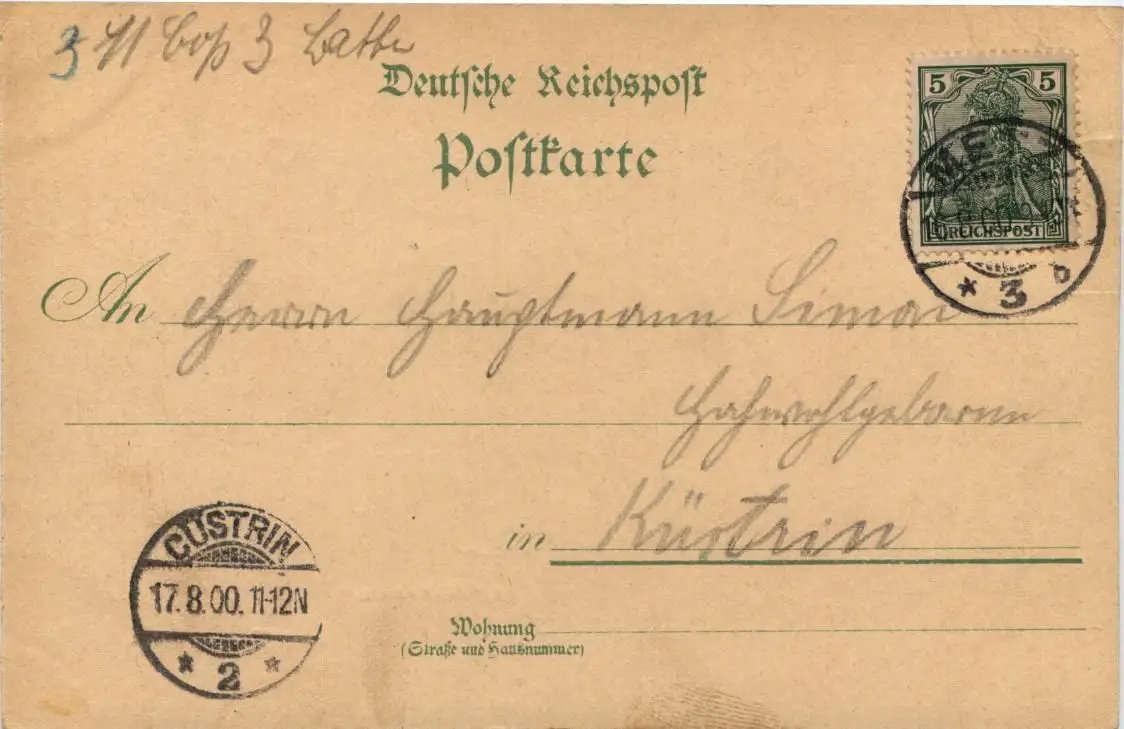 Deutsche Reichspost
Postkarte
5 5
REICHSPOST
3 b
An Herrn Hauptmann Simon
Hochwohlgeboren
in Küstrin
CÜSTRIN
17.8.00. 11-12N
* 2 *
Wohnung
(Straße und Hausnummer)